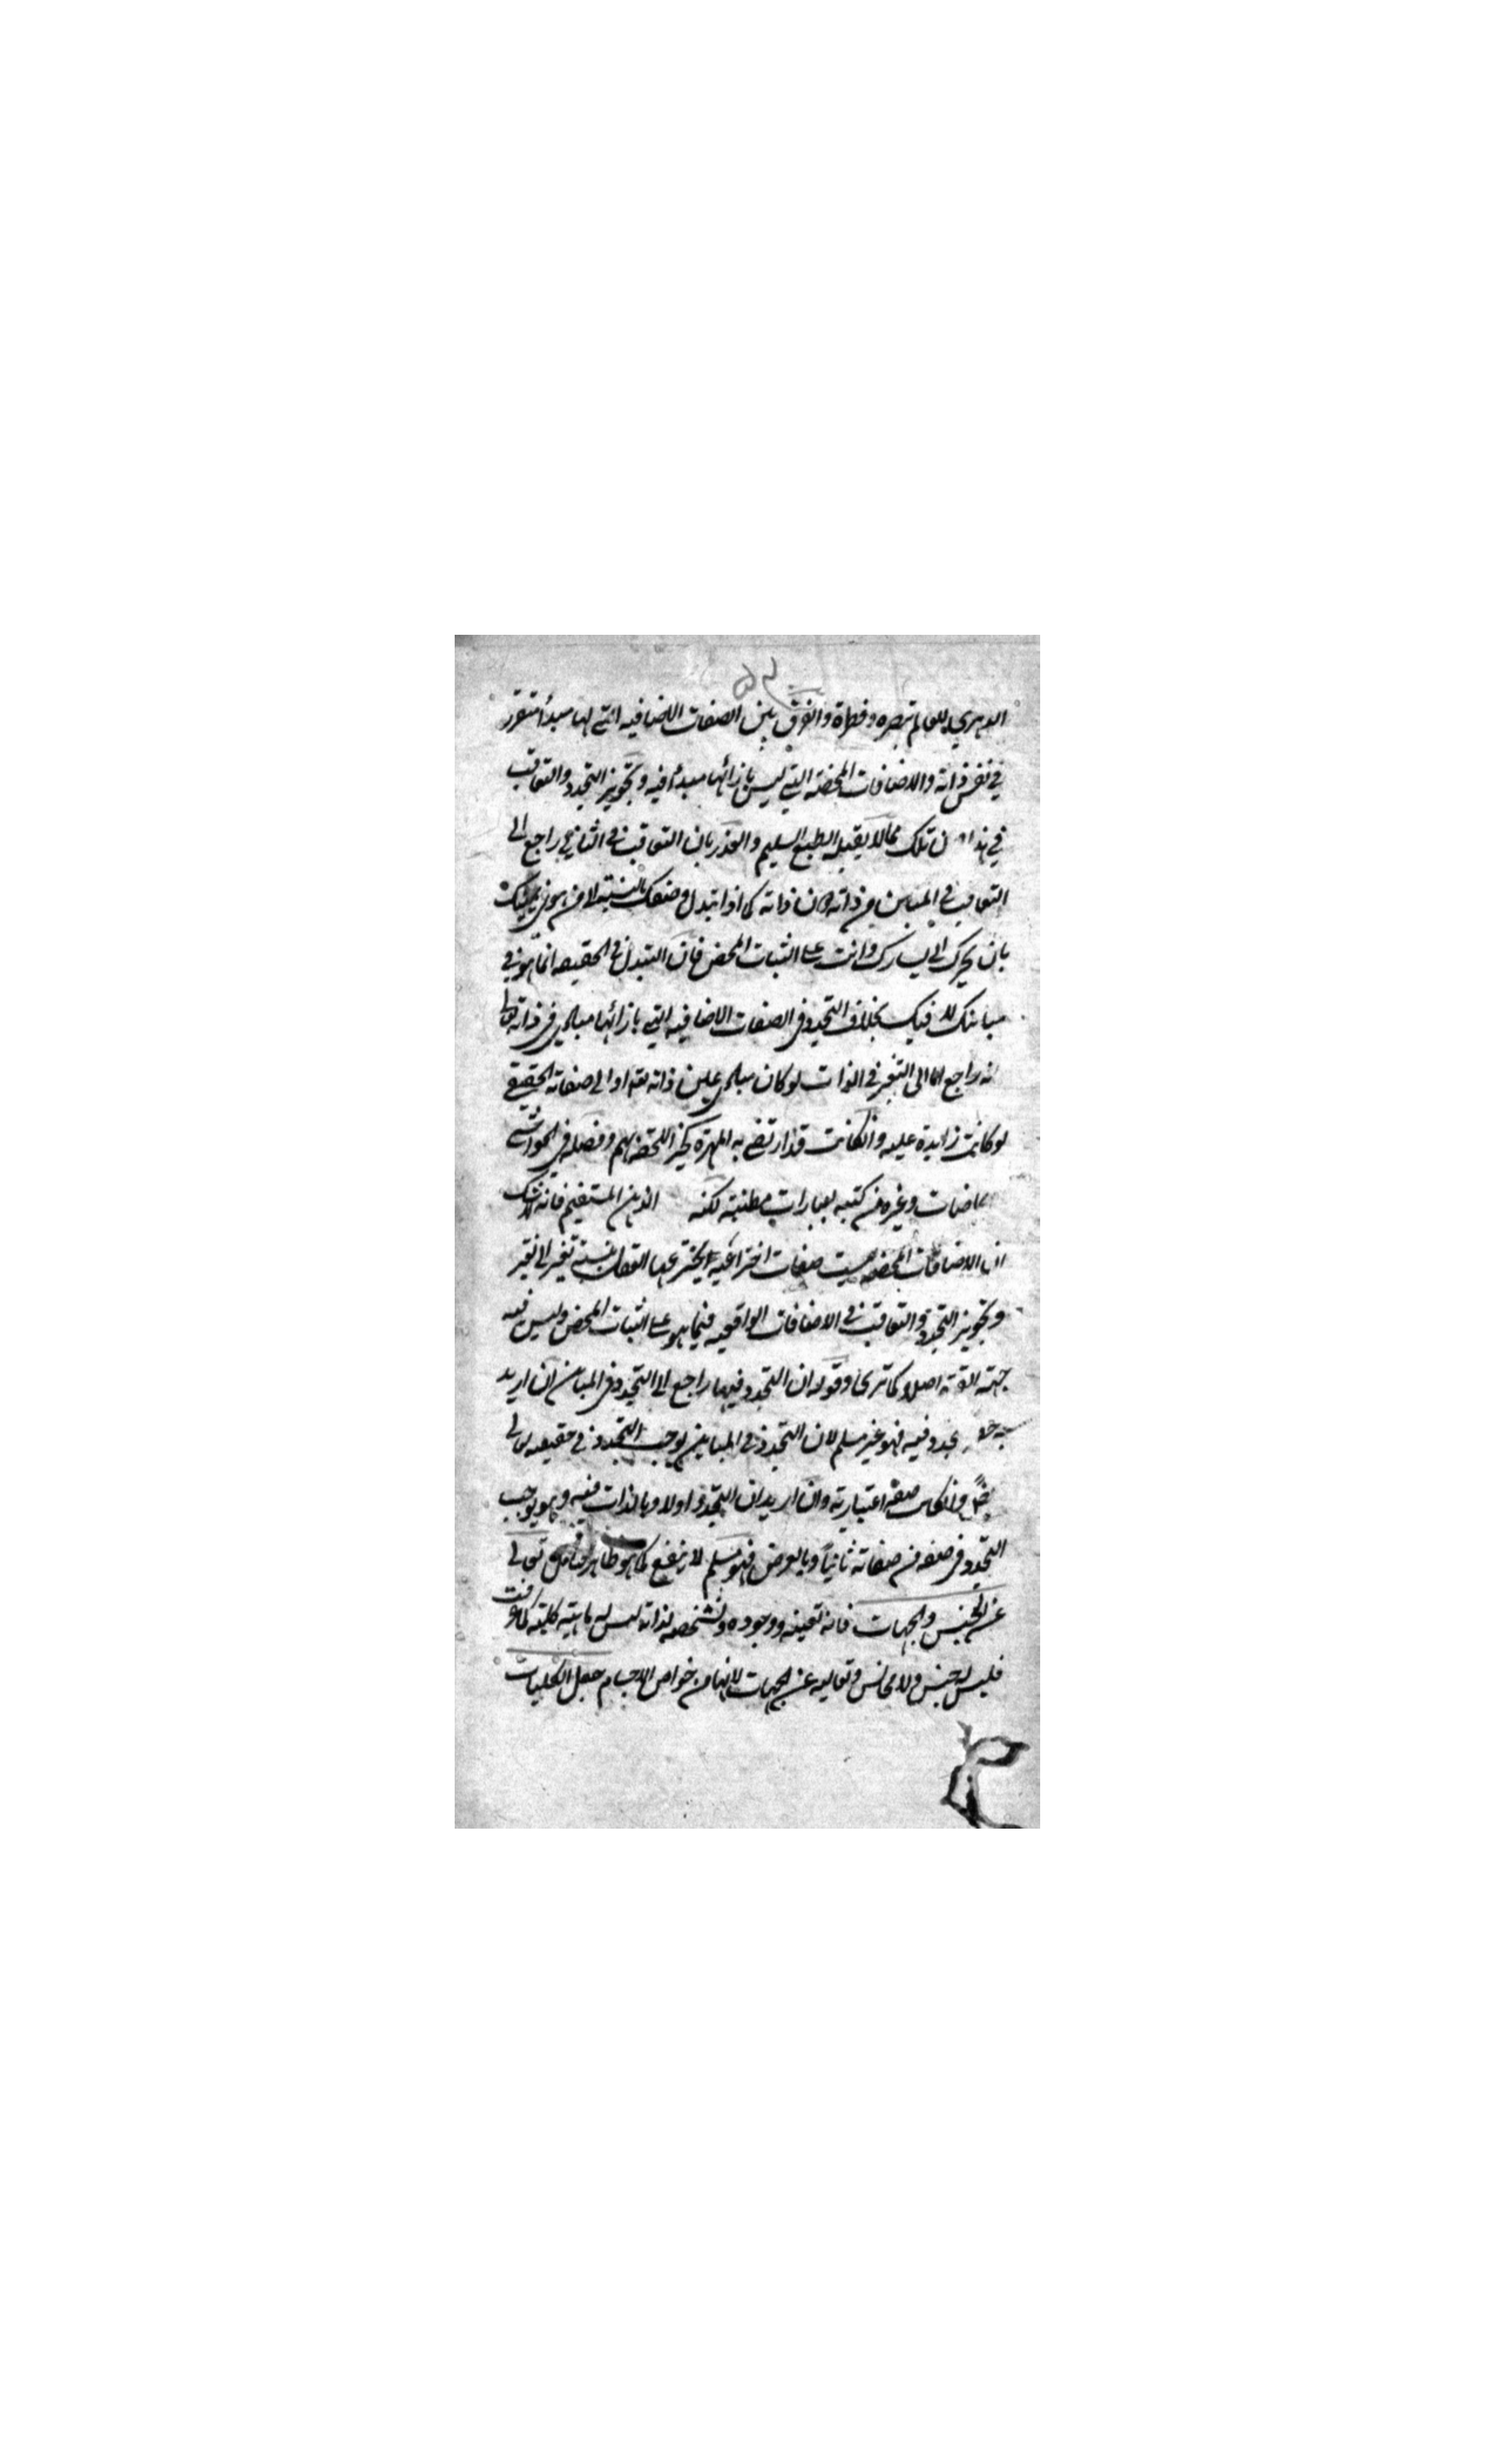 الدهري للعالم تبصره وفطرة والفرق بين الصفات الاضافيه التي لها مبدأ متقرر
في نفس ذاته والاضافات المحضه التي ليس بازائها مبدأ فيه وتجويز التجدد والتعاقب
في هذه دون تلك مما لا يقبله الطبع السليم والعذر بان التعاقب في الثاني راجع الى
التعاقب في المباين من ذاته كما اذا تبدل وضعك بالنسبة الى من هو في يمينك
بان يتحرك الى يسارك وانت على الثبات المحض فان التبدل في الحقيقه انما هو في
مباينك لا فيك بخلاف التجدد في الصفات الاضافيه التي بازائها مبادي في ذاته تعالى
انه راجع اما الى التغير في الذات لو كان مبادي عين ذاته تعه او الى صفاته الحقيقي
لو كانت زايدة عليه وان كانت قد ارتضى به المهرة وفصله في الحواشي
وغيره من كتبه بعبارات مطنبة لكنه الذهن المستقيم فانه لا شك
ان الاضافات المحضه ليست صفات اختراعيه يخترعها العقل من غير
وتجويز التجدد والتعاقب في الاضافات الواقعيه فيما هو على الثبات المحض وليس فيه
جهة القوة اصلا كما ترى وقوله ان التجدد فيها راجع الى التجدد في المباين ان اريد
تجدد فيه فهو غير مسلم لان التجدد في المباين يوجب التجدد في حقيقه تعالى
ايضا وان كانت صفه اعتباريه وان اريد ان التجدد اولا وبالذات فيه وهو يوجب
التجدد في صفه من صفاته ثانيا وبالعرض فهو مسلم لا ينفع كما هو ظاهر تعالى
عن الجنس والجهات فانه تعينه ووجوده وتشخصه لذاته ليس له ماهية كلية كما عرفت
فليس له جنس ولا مجانس وتعاليه عن الجهات لانها من خواص الاجسام جعل الكليات